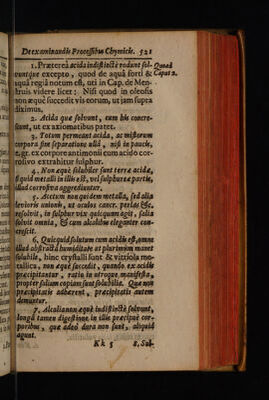 De examinandis Processibus Chymicis. 521
1. Præterea acida indistincte redunt sol- Quoad
vuntque excepto, quod de aqua forti & Caput 2.
aqua regia notum est, uti in Cap. de Men-
struis videre licet: Nisi quod in oleosis
non æque succedit vis eorum, ut jam supra
diximus.
2. Acida quæ solvunt, cum his concre-
scunt, ut ex axiomatibus patet.
3. Totum permeant acida, ac mistorum
corpora sine separatione ulla, nisi in paucis,
e. gr. ex corpore antimonii cum acido cor-
rosivo extrahitur sulphur.
4. Non æque solubiles sunt terræ acida,
si quid metalli in illis est, vel sulphureæ partis,
illud corrosiva aggrediuntur.
5. Acetum non quidem metalla, sed alia
levioris unionis, ut oculos cancr. perlas &c.
resolvit, in sulphur vix quicquam agit, salia
solvit omnia, & cum alcalibus eleganter con-
crescit.
6. Quicquid solutum cum acidis est, omne
illud abstracta humiditate ut plurimum manet
solubile, hinc crystalli sunt & vitriola me-
tallica, non æque succedit, quando ex acidis
præcipitantur, ratio in utroque manifesta,
propter salium copiam sunt solubilia. Quæ non
præcipitatis adhærent, præcipitatis autem
demuntur.
7. Alcalia non æque indistincte solvunt,
longa tamen digestione in illis præcipue cor-
poribus, quæ adeo dura non sunt, aliquid
agunt.
Kk 5 8. Sul-